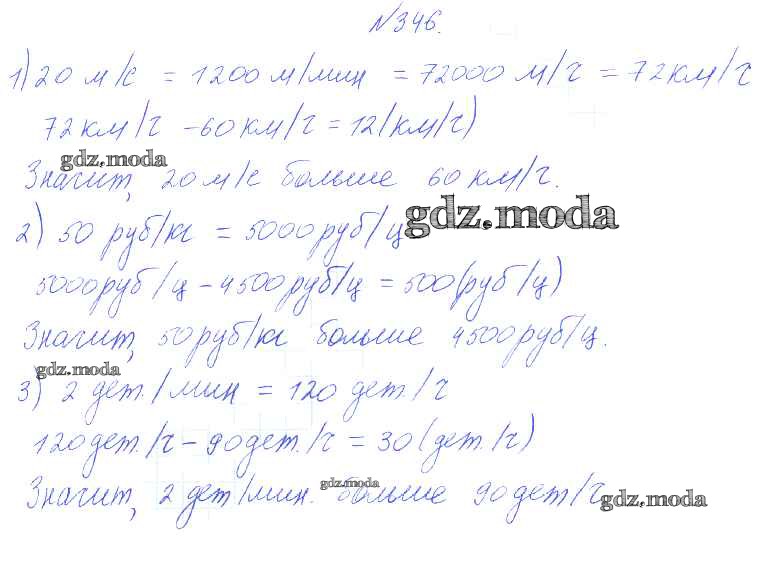 №346.
1) 20 м/с = 1200 м/мин = 72000 м/ч = 72 км/ч
72 км/ч - 60 км/ч = 12 (км/ч)
gdz.moda
Значит, 20 м/с больше 60 км/ч.
gdz.moda
2) 50 руб/кг = 5000 руб/ц
5000 руб/ц - 4500 руб/ц = 500 (руб/ц)
Значит, 50 руб/кг больше 4500 руб/ц.
gdz.moda
3) 2 дет./мин = 120 дет./ч
120 дет./ч - 90 дет./ч = 30 (дет./ч)
gdz.moda
Значит, 2 дет/мин. больше 90 дет/ч
gdz.moda